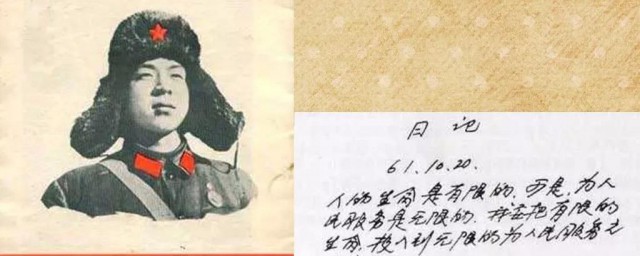 日记
61.10.20.
人的生命是有限的，可是，为人
民服务是无限的，我要把有限的
生命，投入到无限的为人民服务之